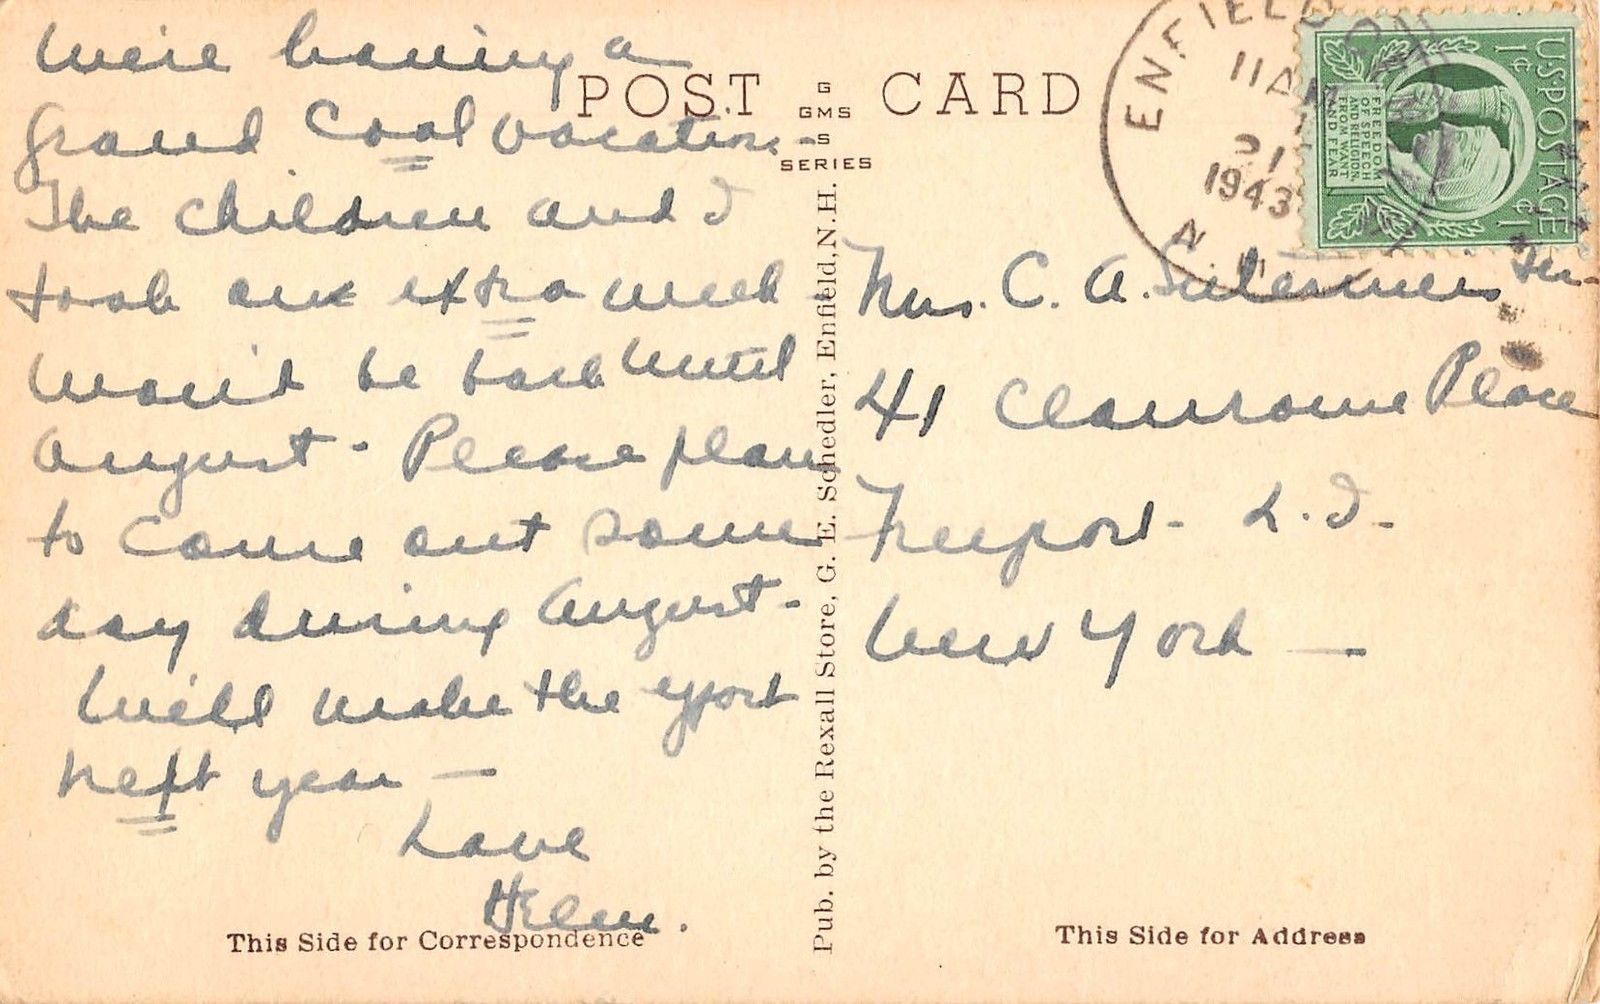 We're having a
grand cool vacation -
The children and I
took an extra week -
Won't be back until
August - Please plan
to come out some
day during August -
Will make the effort
next year —
Love
Helen.
This Side for Correspondence
POST CARD
G
GMS
S
SERIES
Pub. by the Rexall Store, G. E. Schedler, Enfield, N. H.
ENFIELD
11 AM
21
1943
N. H.
U.S. POSTAGE
1¢ 1¢
FREEDOM
OF SPEECH
AND RELIGION,
FROM WANT
AND FEAR
Mrs. C. A. Sen.
41 Place
Freeport - L. I. -
New York —
This Side for Address